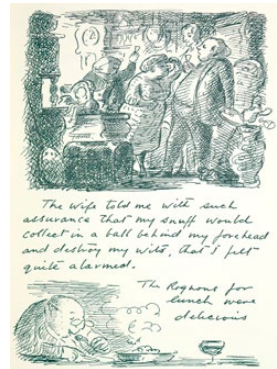 The Wife told me with such
assurance that my snuff would
collect in a ball behind my forehead
and destroy my wits, that I felt
quite alarmed.
The Rognons for
lunch were
delicious